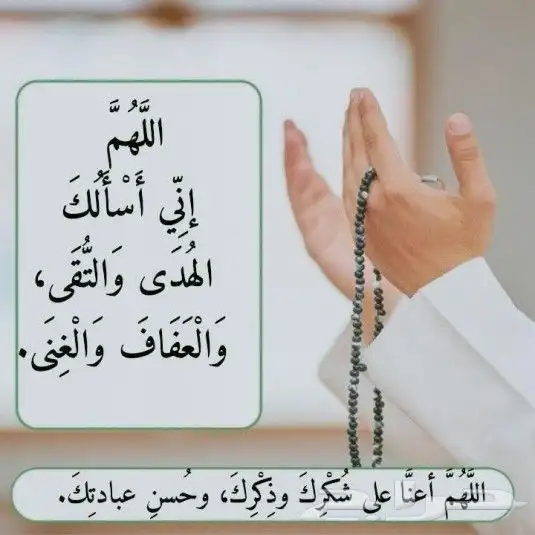 اللَّهُمَّ
إِنِّي أَسْأَلُكَ
الهُدَى وَالتُّقَى،
وَالْعَفَافَ وَالْغِنَى.
اللَّهُمَّ أعنَّا على شُكْرِكَ وذِكْرِكَ، وحُسنِ عبادتِكَ.